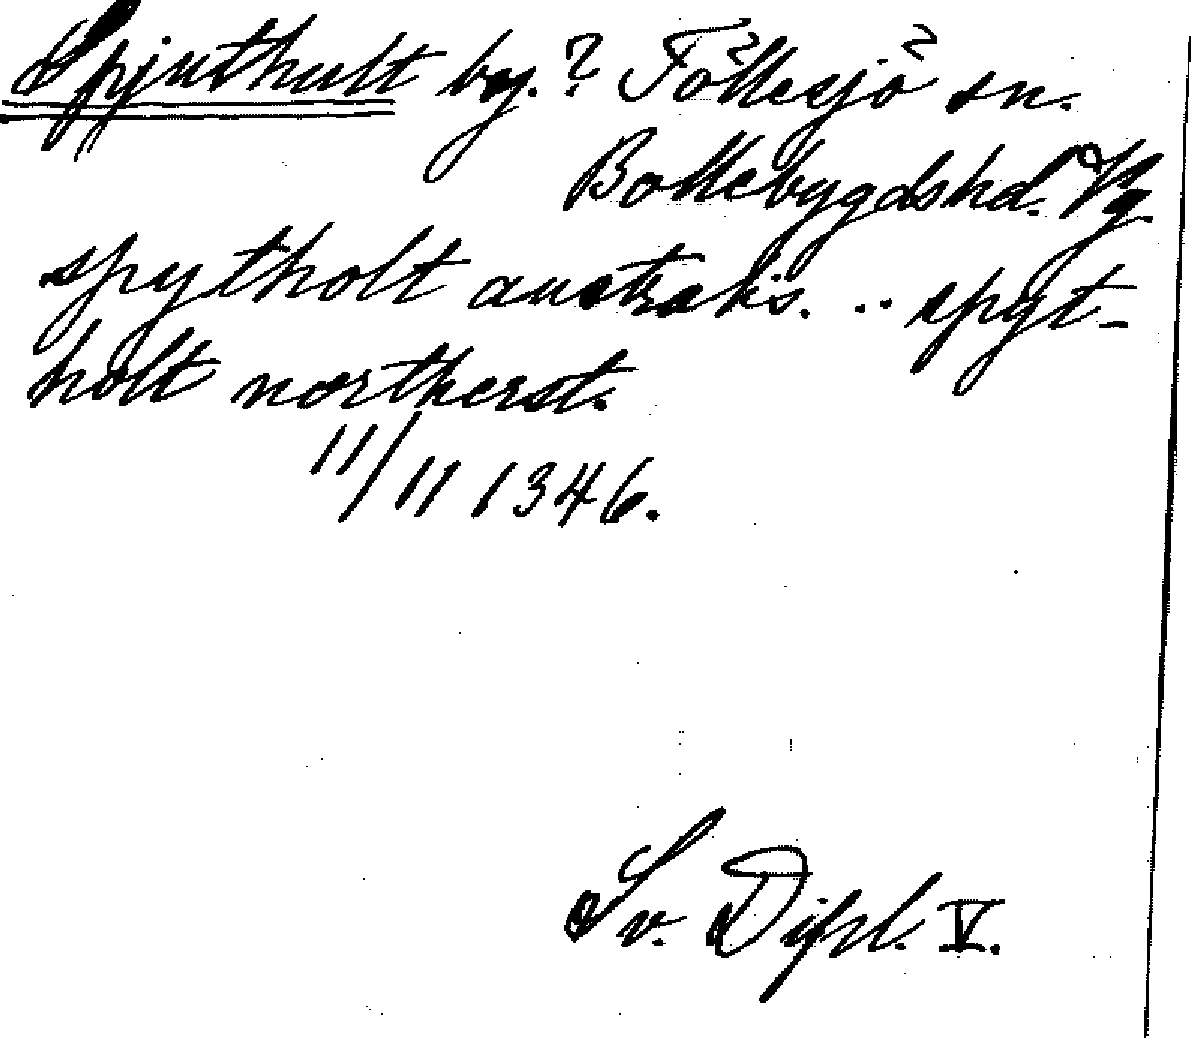 Spjuthult by.? Töllesjö sn.
Bollebygdshd. Vg.
spytholt australis. .. spyt-
holt northerst.
11/11 1346.
Sv. Dipl. V.